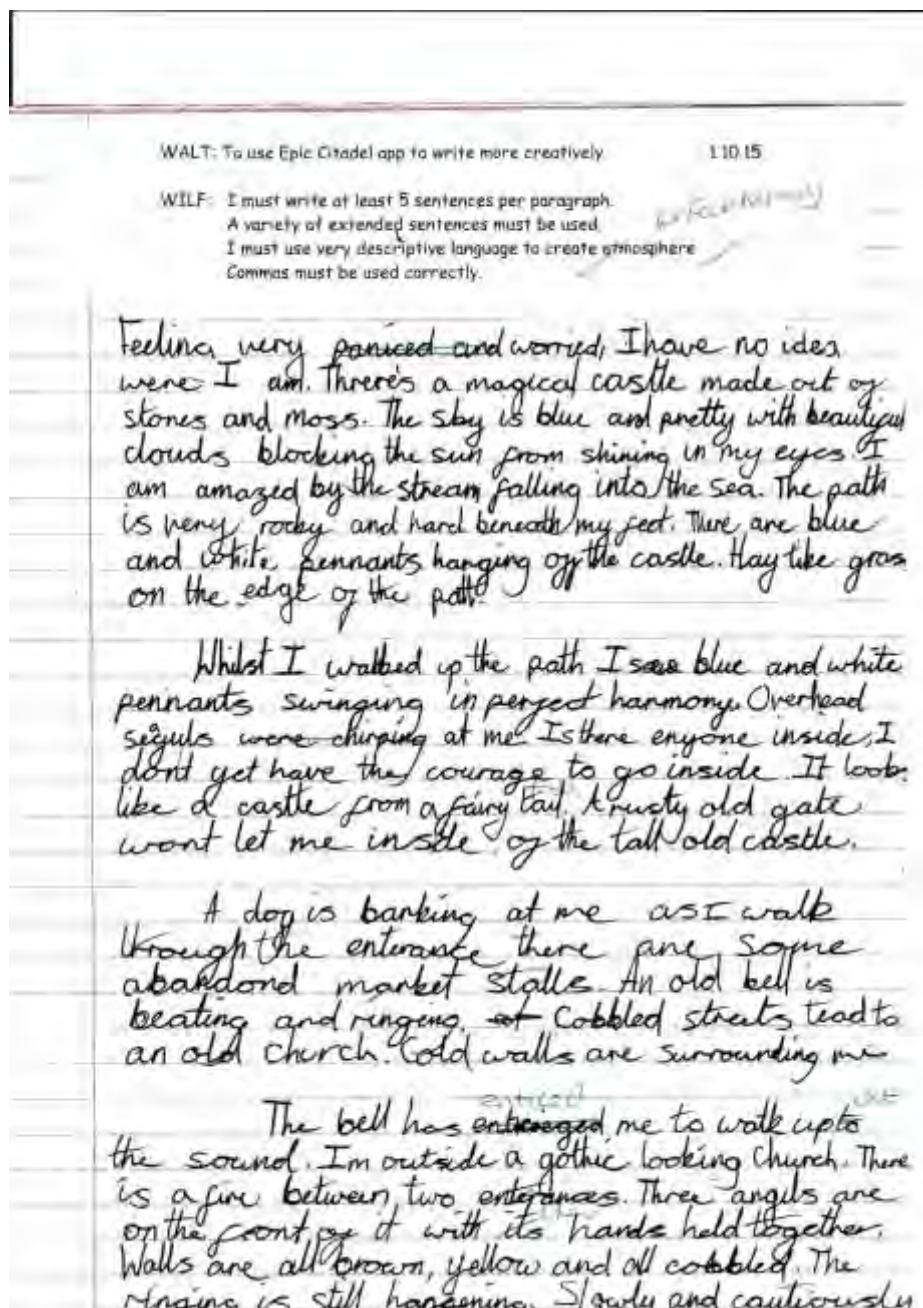 WALT: To use Epic Citadel app to write more creatively 1 10 15
WILF: I must write at least 5 sentences per paragraph.
A variety of extended sentences must be used
I must use very descriptive language to create atmosphere
Commas must be used correctly.
Feeling very paniced and worried, I have no idea
were I am. Threre's a magical castle made out of
stones and moss. The sky is blue and pretty with beautiful
clouds blocking the sun from shining in my eyes. I
am amazed by the stream falling into the sea. The path
is very rocky and hard beneath my feet. There are blue
and white pennants hanging off the castle. Hay like gras
on the edge of the path.
Whilst I walked up the path I saw blue and white
pennants swinging in perfect harmony. Overhead
seguls were chirping at me. Is there enyone inside, I
dont yet have the courage to go inside. It looks
like a castle from a fairy tail. A rusty old gate
wont let me inside of the tall old castle.
A dog is barking at me as I walk
through the enterance there are some
abandond market stalls. An old bell is
beating and ringing. Cobbled streets lead to
an old church. Cold walls are surrounding me
enticed
The bell has me to walk upto
the sound. Im outside a gothic looking church. There
is a fire between two enterances. Three angils are
on the front of it with its hands held together.
Walls are all brown, yellow and all cobbled. The
ringing is still happening. Slowly and cautiously